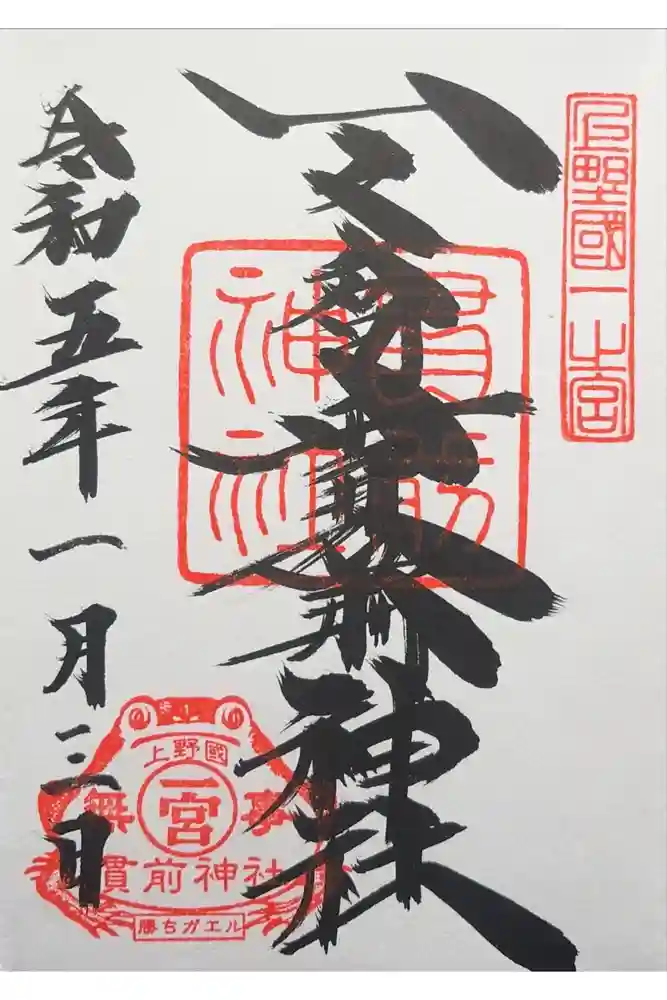 上野國一之宮
一之宮貫前神社
貫前
神社
令和五年一月三日
上野國
一宮
無事
貫前神社
勝ちガエル